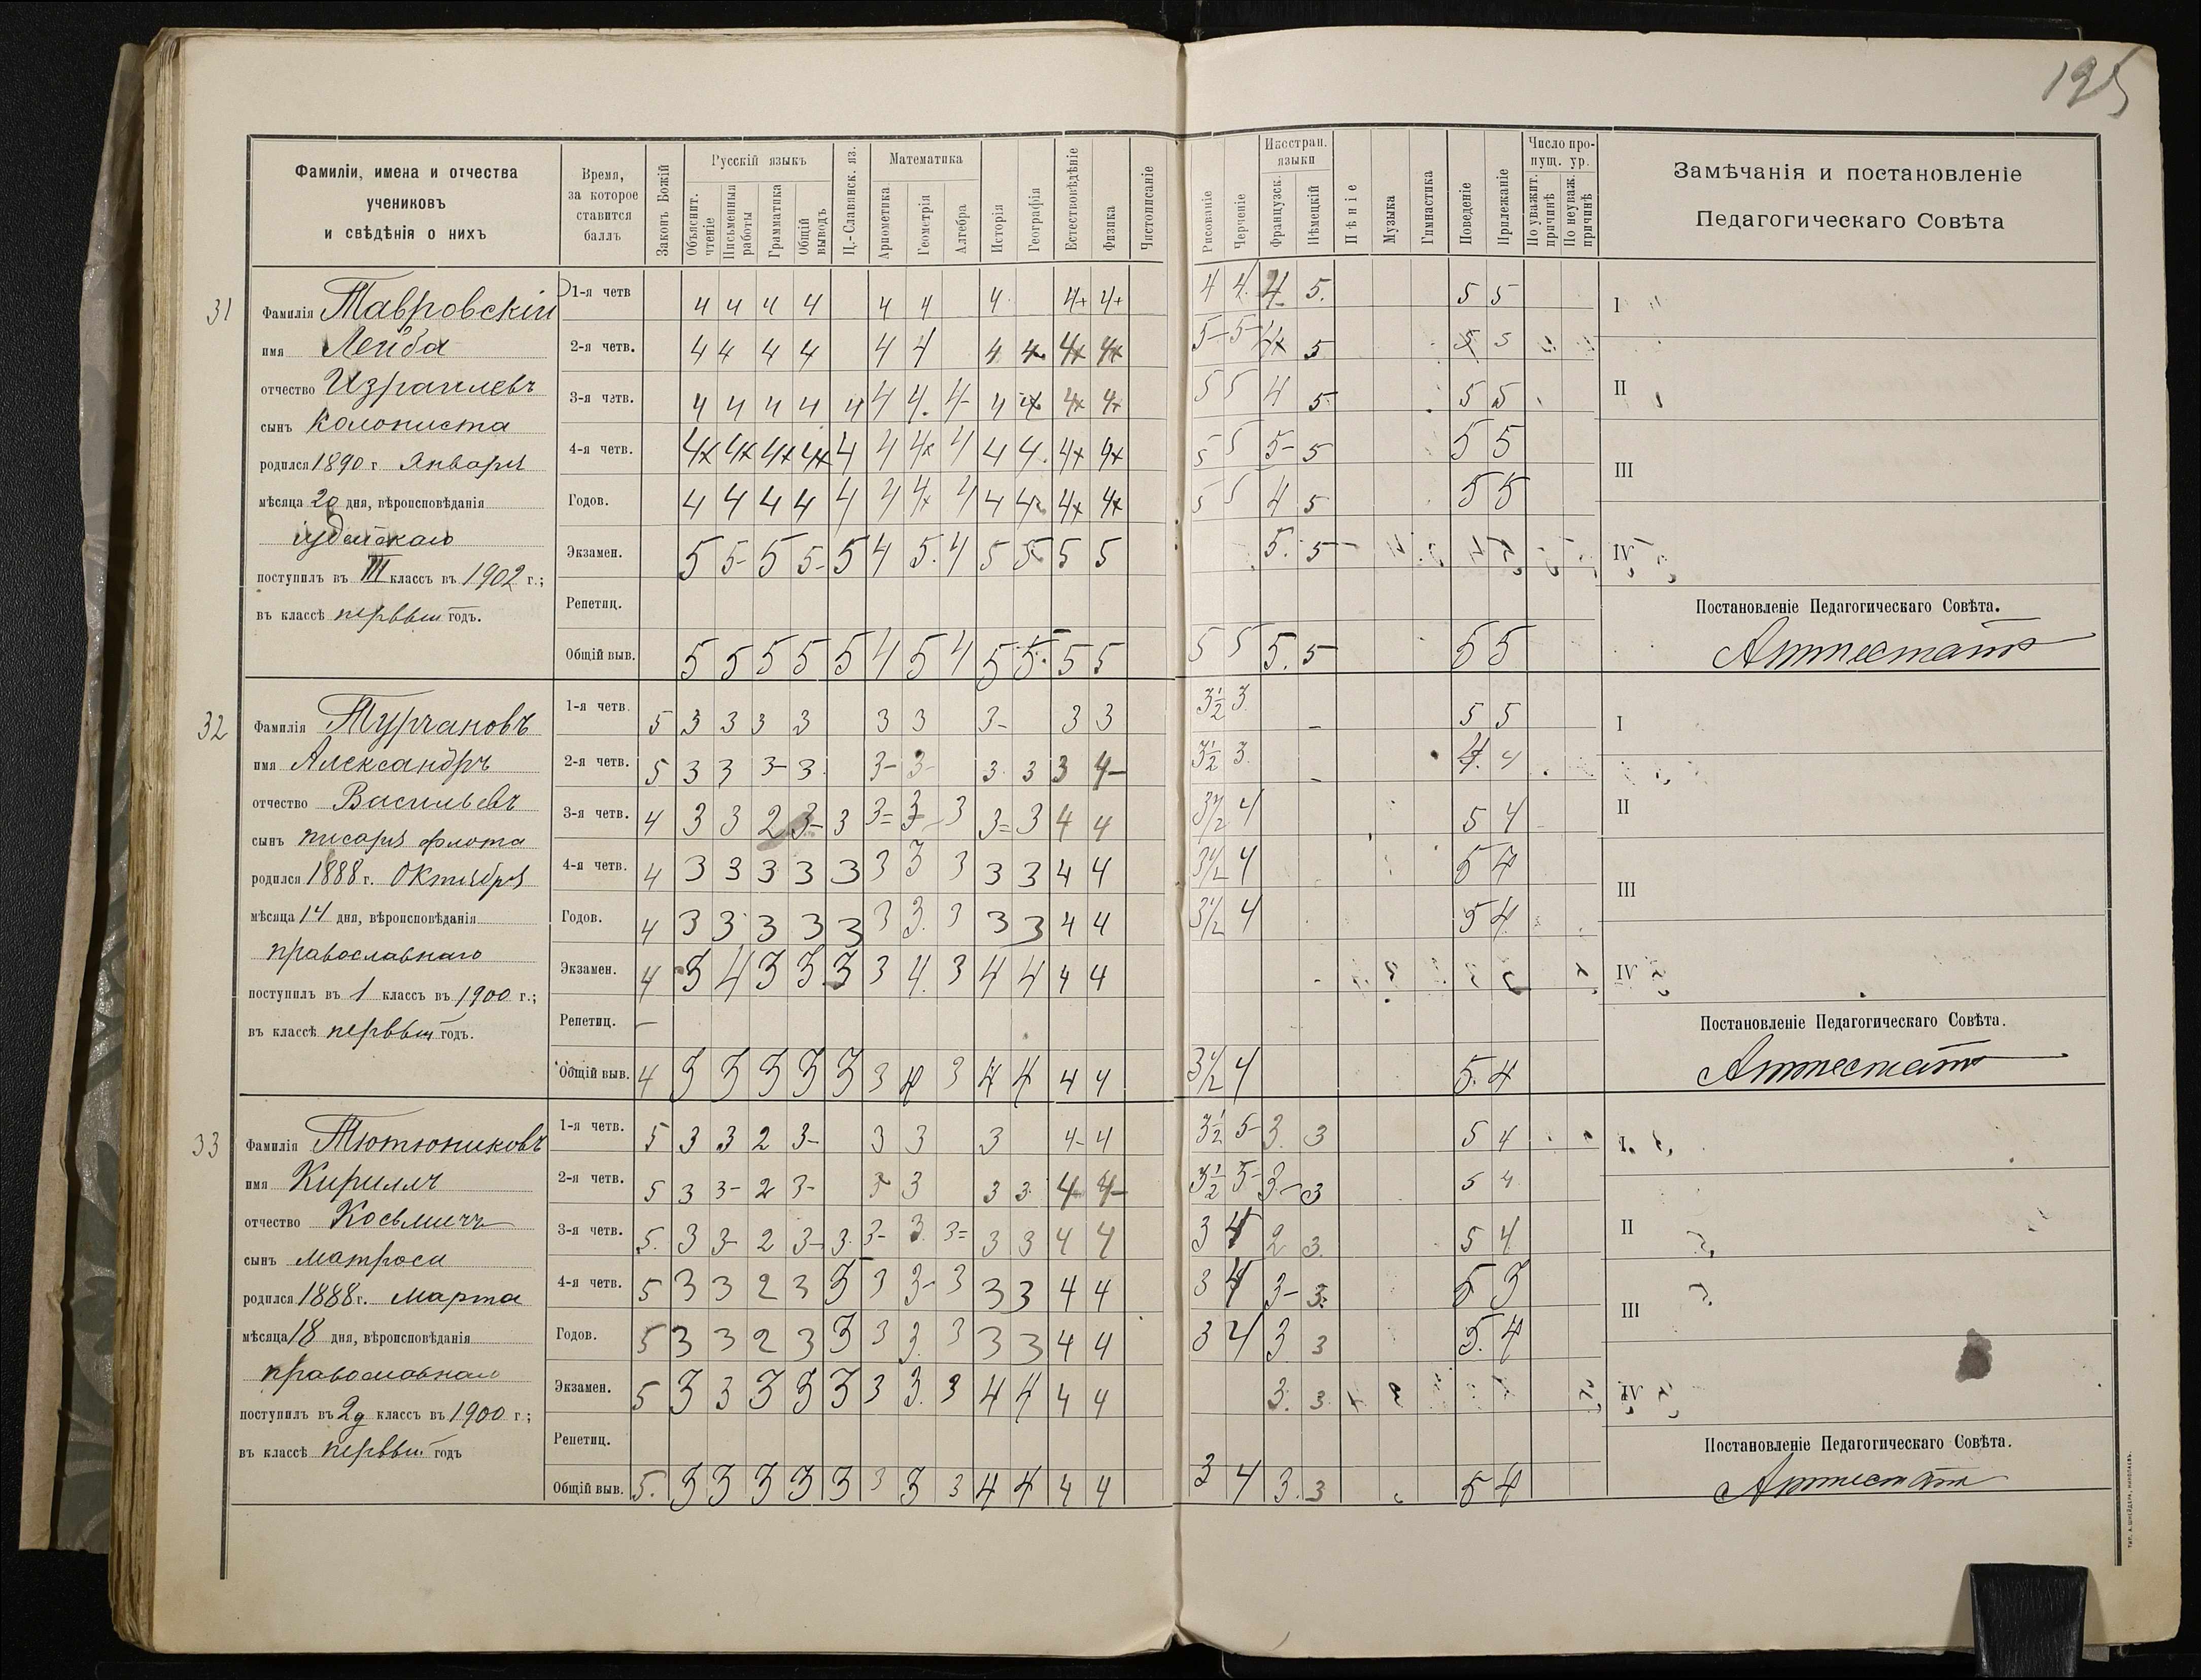 125
Фамиліи, имена и отчества
учениковъ
и свѣдѣнія о нихъ
Время,
за которое
ставится
баллъ
Законъ Божій
Русскій языкъ
Объяснит. чтеніе
Письменныя работы
Грамматика
Общій выводъ
Ц.-Славянск. яз.
Математика
Ариѳметика
Геометрія
Алгебра
Исторія
Географія
Естествовѣдѣніе
Физика
Чистописаніе
Рисованіе
Черченіе
Иностран. языки
Французск.
Нѣмецкій
Пѣніе
Музыка
Гимнастика
Поведеніе
Прилежаніе
Число пропущ. ур.
По уважит. причинѣ
По неуваж. причинѣ
Замѣчанія и постановленіе
Педагогическаго Совѣта
31
Фамилія Тавровскій
имя Лейба
отчество Израилевъ
сынъ колониста
родился 1890 г Января
мѣсяца 20 дня, вѣроисповѣданія
іудейскаго
поступилъ въ III классъ въ 1902 г.;
въ классѣ первый годъ.
1-я четв 4 4 4 4 4 4 4 4+ 4+ 4 4 4 5 5 5
2-я четв. 4 4 4 4 4 4 4 4 4+ 4+ 5- 5- 4+ 5 5 5
3-я четв. 4 4 4 4 4 4 4 4- 4 4 4+ 4+ 5 5 4 5 5 5
4-я четв. 4+ 4+ 4+ 4+ 4 4 4+ 4 4 4 4+ 4+ 5 5 5- 5 5 5
Годов. 4 4 4 4 4 4 4+ 4 4 4 4+ 4+ 5 5 4 5 5 5
Экзамен. 5 5- 5 5- 5 4 5 4 5 5 5 5 5 5
Репетиц.
Общій выв. 5 5 5 5 5 4 5 4 5 5 5 5 5 5 5 5 5 5
I
II
III
IV
Постановленіе Педагогическаго Совѣта.
Аттестатъ
32
Фамилія Турчановъ
имя Александръ
отчество Васильевъ
сынъ писаря флота
родился 1888 г. Октября
мѣсяца 14 дня, вѣроисповѣданія
православнаго
поступилъ въ 1 классъ въ 1900 г.;
въ классѣ первый годъ.
1-я четв. 5 3 3 3 3 3 3 3- 3 3 3½ 3 5 5
2-я четв. 5 3 3 3- 3 3- 3- 3 3 3 4- 3½ 3 4 4
3-я четв. 4 3 3 2 3- 3 3= 3- 3 3= 3 4 4 3½ 4 5 4
4-я четв. 4 3 3 3 3 3 3 3 3 3 3 4 4 3½ 4 5 4
Годов. 4 3 3 3 3 3 3 3 3 3 3 4 4 3½ 4 5 4
Экзамен. 4 3 4 3 3 3 3 4 3 4 4 4 4
Репетиц. —
Общій выв. 4 3 3 3 3 3 3 4 3 4 4 4 4 3½ 4 5 4
I
II
III
IV
Постановленіе Педагогическаго Совѣта.
Аттестатъ
33
Фамилія Тютюниковъ
имя Кириллъ
отчество Косьмичъ
сынъ матроса
родился 1888 г. Марта
мѣсяца 18 дня, вѣроисповѣданія
православнаго
поступилъ въ 2й классъ въ 1900 г.;
въ классѣ первый годъ
1-я четв. 5 3 3 2 3- 3 3 3 4- 4 3½ 5- 3 3 5 4
2-я четв. 5 3 3- 2 3- 3 3 3 3 4 4- 3½ 5- 3- 3 5 4
3-я четв. 5 3 3- 2 3- 3 3- 3 3= 3 3 4 4 3 4 2 3 5 4
4-я четв. 5 3 3 2 3 3 3 3- 3 3 3 4 4 3 4 3- 3 5 3
Годов. 5 3 3 2 3 3 3 3 3 3 3 4 4 3 4 3 3 5 4
Экзамен. 5 3 3 3 3 3 3 3 3 4 4 4 4 3 3
Репетиц.
Общій выв. 5 3 3 3 3 3 3 3 3 4 4 4 4 3 4 3 3 5 4
I
II
III
IV
Постановленіе Педагогическаго Совѣта.
Аттестатъ